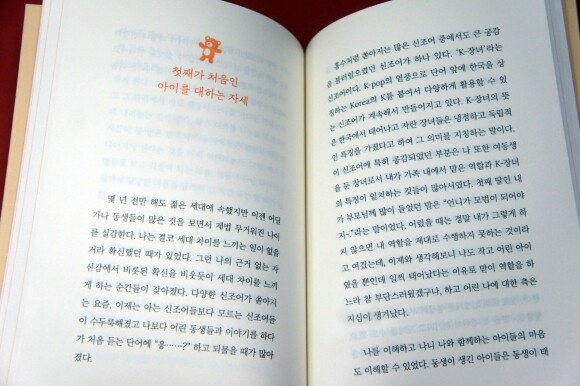 첫째가 처음인
아이를 대하는 자세
몇 년 전만 해도 젊은 세대에 속했지만 이젠 어딜
가나 동생들이 많은 것을 보면서 제법 무거워진 나이
를 실감한다. 나는 결코 세대 차이를 느끼는 일이 없을
거라 확신했던 때가 있었다. 그런 나의 근거 없는 자
신감에서 비롯된 확신을 비웃듯이 세대 차이를 느끼
게 하는 순간들이 잦아졌다. 다양한 신조어가 쏟아지
는 요즘, 이제는 아는 신조어들보다 모르는 신조어들
이 수두룩해졌고 나보다 어린 동생들과 이야기를 하다
가 처음 듣는 단어에 “응……?” 하고 되물을 때가 많아
졌다.
홍수처럼 쏟아지는 많은 신조어 중에서도 큰 공감
을 불러일으켰던 신조어가 하나 있다. ‘K-장녀’라는
신조어이다. K-pop의 열풍으로 단어 앞에 한국을 상
징하는 Korea의 K를 붙여서 다양하게 활용할 수 있
는 신조어가 계속해서 만들어지고 있다. K-장녀의 뜻
은 한국에서 태어나고 자란 장녀들은 냉정하고 독립적
인 특징을 가졌다고 하여 그 의미를 지칭하는 말이다.
이 신조어에 특히 공감되었던 부분은 나 또한 여동생
을 둔 장녀로서 내가 가족 내에서 맡은 역할과 K-장녀
의 특징이 일치하는 것들이 많아서였다. 첫째 딸인 내
가 부모님께 많이 들었던 말은 “언니가 모범이 되어야
지~.”라는 말이었다. 어렸을 때는 정말 내가 그렇게 하
지 않으면 내 역할을 제대로 수행하지 못하는 것이라
고 여겼는데, 이제와 생각해보니 나도 작고 어린 아이
였을 뿐인데 일찍 태어났다는 이유로 받아 역할을 하
느라 참 부담스러웠겠구나, 하고 어린 나에 대한 측은
지심이 생겨났다.
나를 이해하고 나니 나와 함께하는 아이들의 마음
도 이해할 수 있었다. 동생이 생긴 아이들은 동생이 태